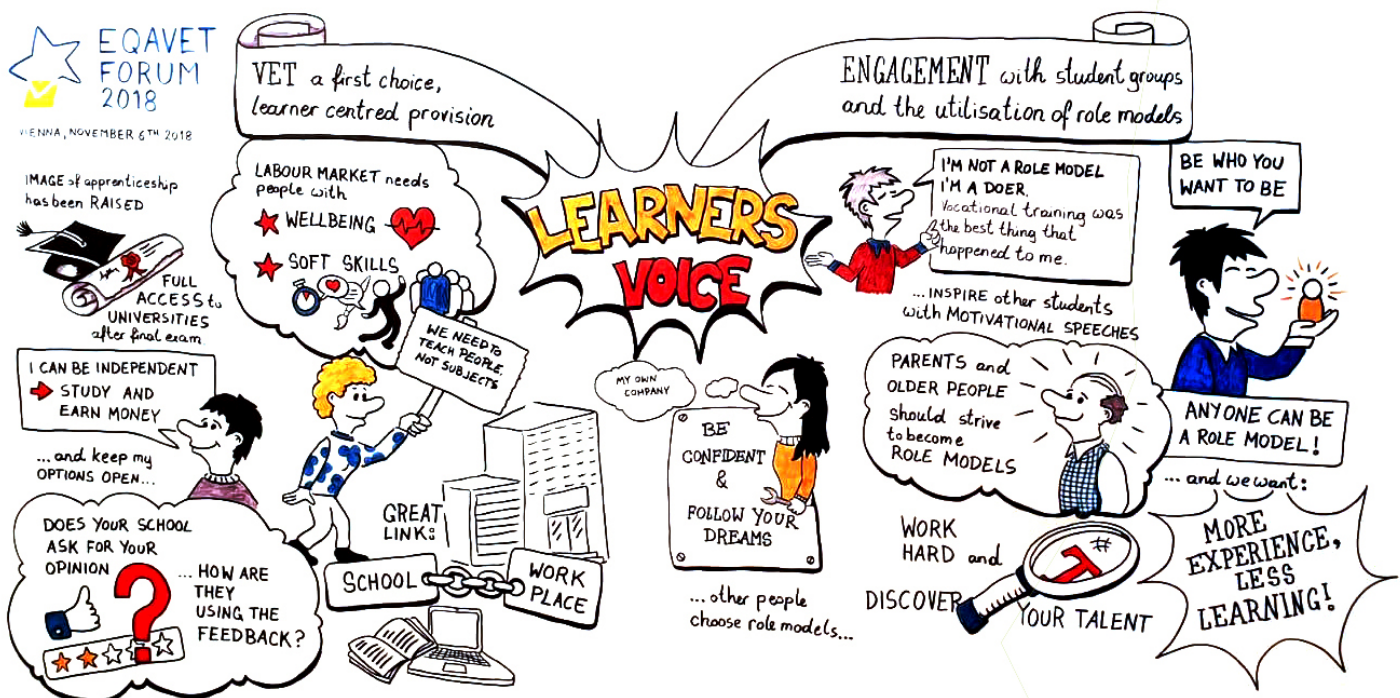 EQAVET
FORUM
2018
VIENNA, NOVEMBER 6TH 2018
VET a first choice,
learner centred provision
ENGAGEMENT with student groups
and the utilisation of role models
LEARNERS
VOICE
IMAGE of apprenticeship
has been RAISED
FULL
ACCESS to
UNIVERSITIES
after final exam
LABOUR MARKET needs
people with
WELLBEING
SOFT SKILLS
WE NEED TO
TEACH PEOPLE,
NOT SUBJECTS
I CAN BE INDEPENDENT
STUDY AND
EARN MONEY
...and keep my
OPTIONS OPEN...
DOES YOUR SCHOOL
ASK FOR YOUR
OPINION ?
... HOW ARE
THEY
USING THE
FEEDBACK?
GREAT
LINK:
SCHOOL
WORK
PLACE
MY OWN
COMPANY
BE
CONFIDENT
&
FOLLOW YOUR
DREAMS
...other people
choose role models...
I'M NOT A ROLE MODEL
I'M A DOER.
Vocational training was
the best thing that
happened to me.
...INSPIRE other students
with MOTIVATIONAL SPEECHES
BE WHO YOU
WANT TO BE
PARENTS and
OLDER PEOPLE
should strive
to become
ROLE MODELS
ANYONE CAN BE
A ROLE MODEL!
... and we want:
WORK
HARD and
DISCOVER
YOUR TALENT
T #
MORE
EXPERIENCE,
LESS
LEARNING!